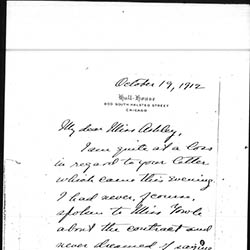 October 19, 1912
Hull-House
800 South Halsted Street
Chicago
My dear Miss Ashley,
I am quite at a loss
in regard to your letter
which came this evening.
I had never, of course,
spoken to Miss
about the contract and
never dreamed of